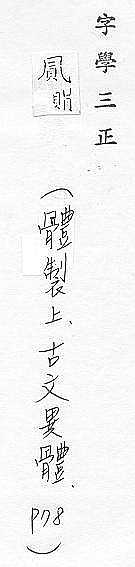 字學三正
（體製上、古文異體、P78）